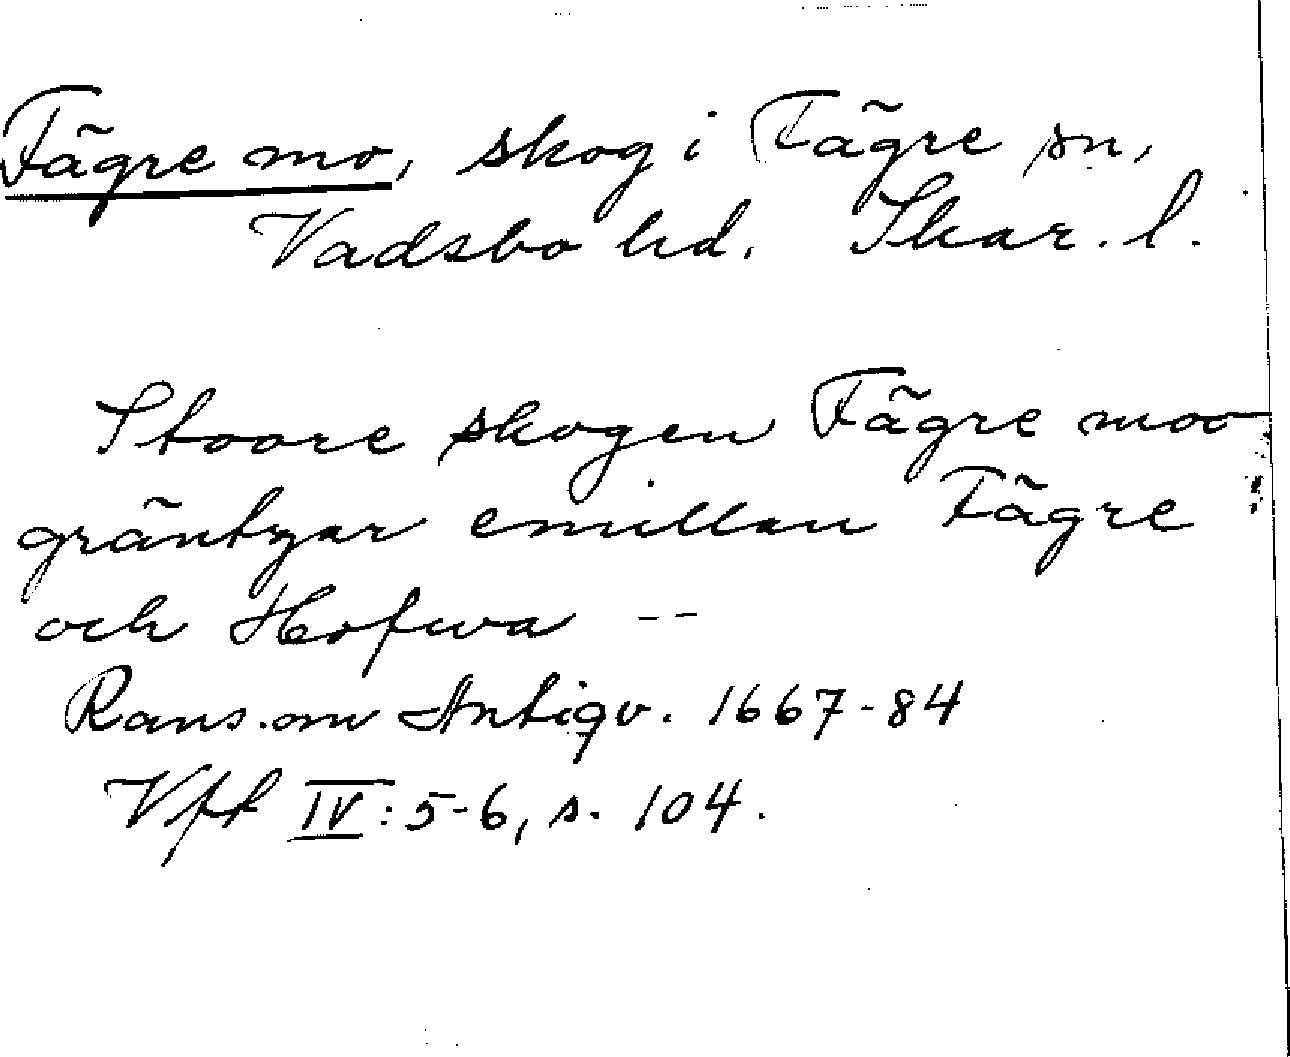 Fägre mo, skog i Fägre sn,
Vadsbo hd. Skar. l.
Stoore skogen Fägre moo
gräntzar emillan Fägre
och Hofwa --
Rans. om Antiqv. 1667-84
Vft IV: 5-6, s. 104.